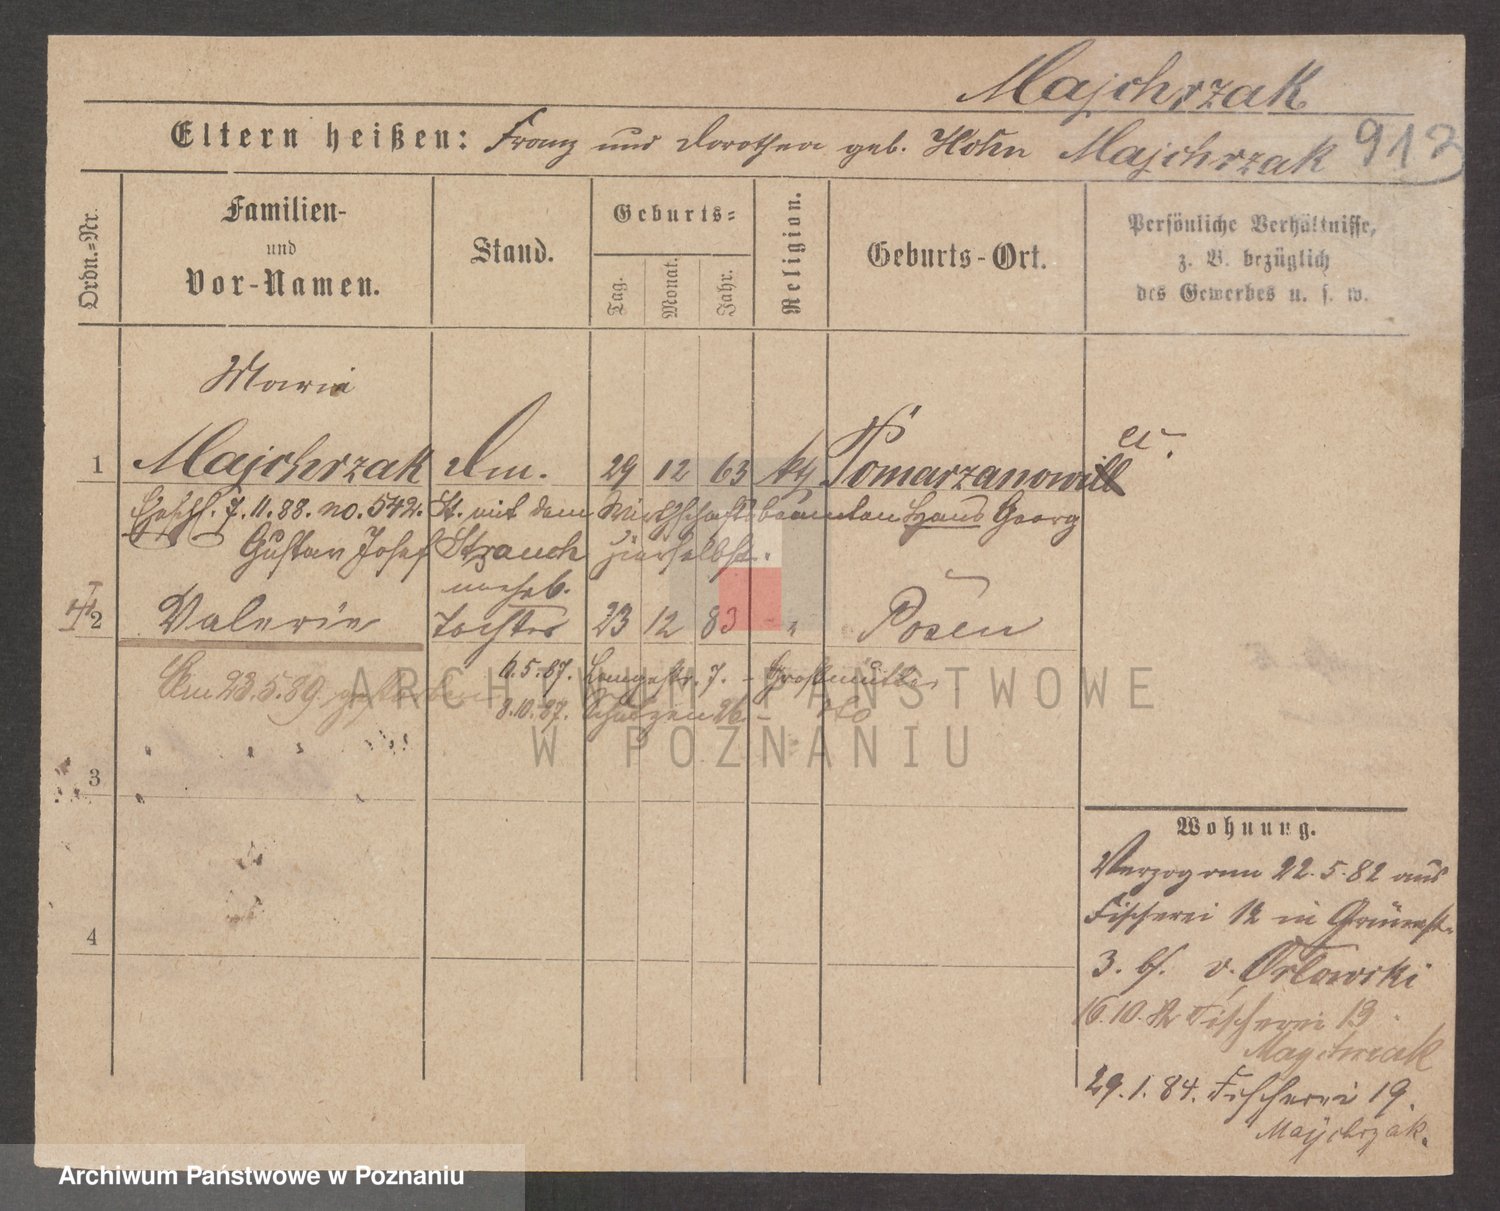 Majchrzak
Eltern heißen: Franz und Dorothea geb. Hohn Majchrzak 912
Ordn.=Nr.
Familien-
und
Vor-Namen.
Stand.
Geburts=
Tag.
Monat.
Jahr.
Religion.
Geburts-Ort.
Persönliche Verhältnisse,
z. B. bezüglich
des Gewerbes u. s. w.
Marie
1 Majchrzak Dm. 29 12 63 kth Pomarzanowi
7.11.88. no. 542. St. mit dem Wirthschaftsbeamten Hans Georg
Gustav Josef Strauch hierselbst.
unehel.
2 Valerie Tochter 23 12 83 - " Posen
6.5.87. Langestr. 7. - Großmutter
Am 23.5.89. gestorben
8.10.87. Schützen 26. - dto
3
4
Wohnung.
Verzog am 22.5.82 aus
Fischerei 12 in Grünest.
3. bf. v. Orlowski
16.10.82 Fischerei 19
Majchrzak
29.1.84. Fischerei 19.
Majchrzak.
ARCHIWUM PAŃSTWOWE
W POZNANIU
Archiwum Państwowe w Poznaniu